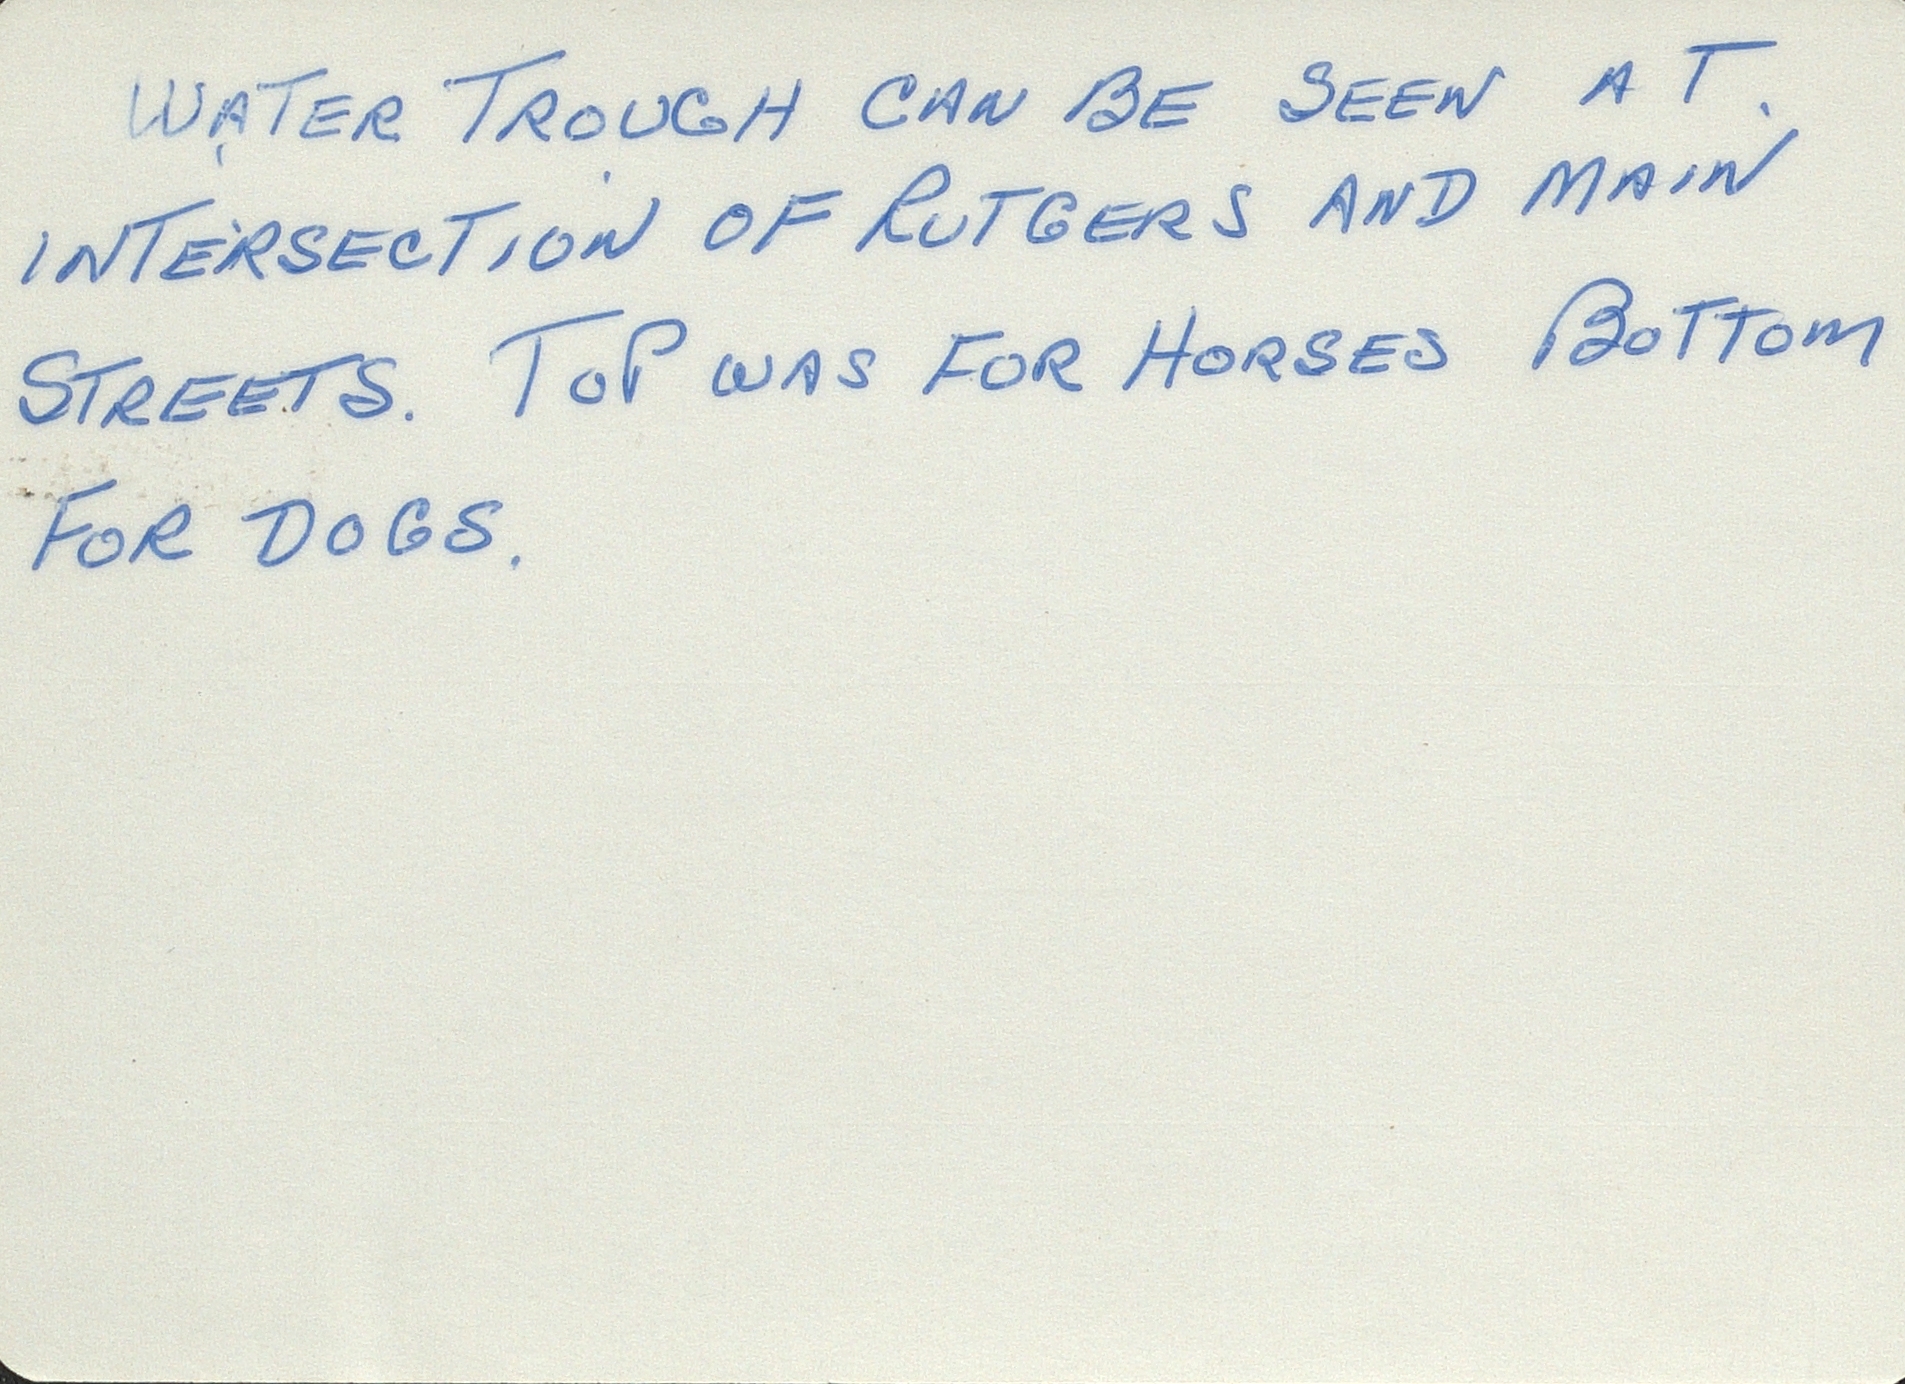 WATER TROUGH CAN BE SEEN AT
INTERSECTION OF RUTGERS AND MAIN
STREETS. TOP WAS FOR HORSES BOTTOM
FOR DOGS.